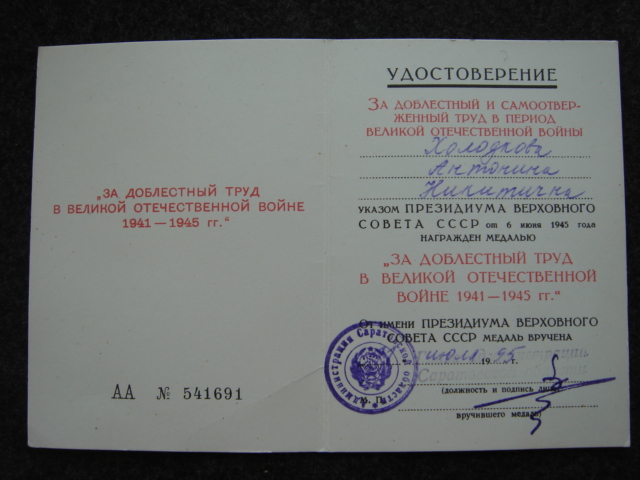 „ЗА ДОБЛЕСТНЫЙ ТРУД
В ВЕЛИКОЙ ОТЕЧЕСТВЕННОЙ ВОЙНЕ
1941—1945 гг.“
АА № 541691
УДОСТОВЕРЕНИЕ
ЗА ДОБЛЕСТНЫЙ И САМООТВЕР-
ЖЕННЫЙ ТРУД В ПЕРИОД
ВЕЛИКОЙ ОТЕЧЕСТВЕННОЙ ВОЙНЫ
Холодкова
Антонина
Никитична
УКАЗОМ ПРЕЗИДИУМА ВЕРХОВНОГО
СОВЕТА СССР от 6 июня 1945 года
НАГРАЖДЕН МЕДАЛЬЮ
„ЗА ДОБЛЕСТНЫЙ ТРУД
В ВЕЛИКОЙ ОТЕЧЕСТВЕННОЙ
ВОЙНЕ 1941—1945 гг.“
ОТ ИМЕНИ ПРЕЗИДИУМА ВЕРХОВНОГО
СОВЕТА СССР МЕДАЛЬ ВРУЧЕНА
июля 1995 г.
(должность и подпись лица,
вручившего медаль)
Администрации Саратовской области
М. П.